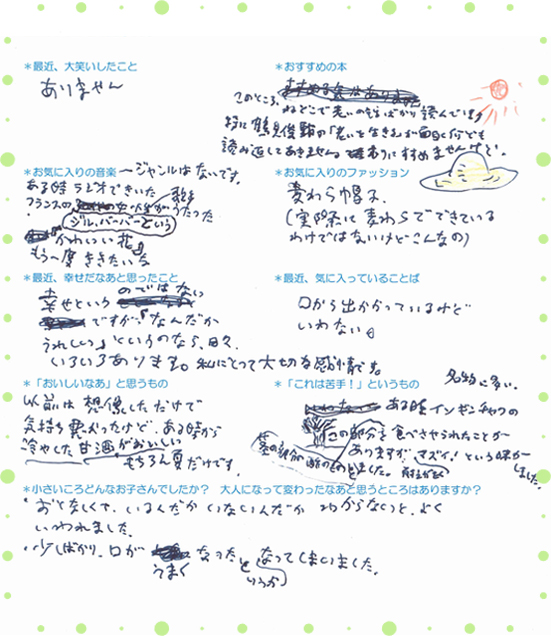 ＊最近、大笑いしたこと
ありません
＊おすすめの本
このところ、ねどこで老いの本ばかり読んでいます
特に鶴見俊輔の「老いを生きる」が面白く何ども
読み返してあきません。
すすめませんけど。
＊お気に入りの音楽
ージャンルはないです。
ある時ラジオできいた
フランスの 歌手がうたった
ジル・バーバーという
かわいい花
もう一度ききたいなあ
＊お気に入りのファッション
麦わら帽子
（実際に麦わらでできている
わけではないけどこんなの）
＊最近、幸せだなあと思ったこと
幸せという のではない
ですが、「なんだか
うれしい」というのなら、日々、
いろいろあります。私にとって大切な感情です。
＊最近、気に入っていることば
口から出かかっているけど
いわない。
＊「おいしいなあ」と思うもの
以前は想像しただけで
気持ち悪かったけど、ある時から
冷やした甘酒がおいしい
もちろん夏だけです。
＊「これは苦手！」というもの
名物に多い。
ある時イソギンチャクの
この部分を食べさせられたことが
ありますが、マズイ！という味が
しました。
＊小さいころどんなお子さんでしたか？　大人になって変わったなあと思うところはありますか？
おとなしくて、いるんだかいないんだかわからないっと、よく
いわれました。
少しばかり、口がうまくなったというかなってしまいました。